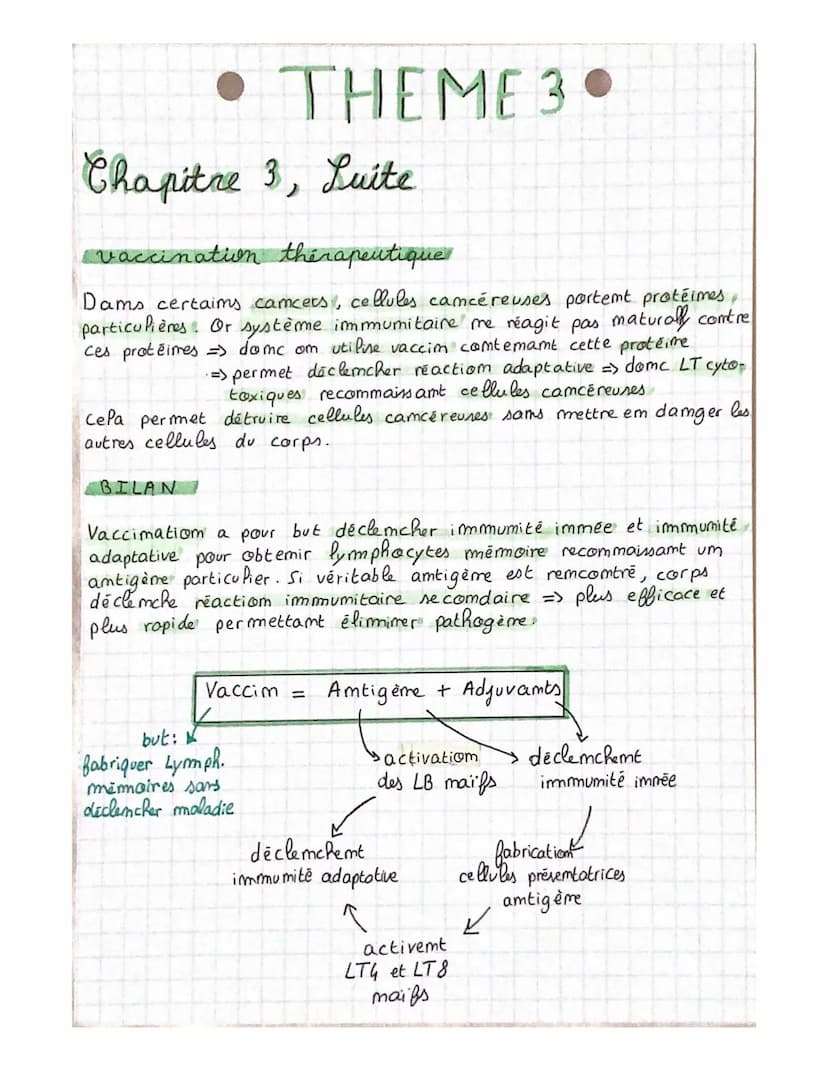 THEME 3
Chapitre 3, Suite
vaccination thérapeutique
Dans certains cancers, cellules cancéreuses portent protéines
particulières. Or système immunitaire ne réagit pas naturell contre
ces protéines => donc on utilise vaccin contenant cette protéine
=> permet déclencher réaction adaptative => donc LT cyto-
toxiques reconnaissant cellules cancéreuses
Cela permet détruire cellules cancéreuses sans mettre en danger les
autres cellules du corps.
BILAN
Vaccination a pour but déclencher immunité innée et immunité
adaptative pour obtenir lymphocytes mémoire reconnaissant un
antigène particulier. Si véritable antigène est rencontré, corps
déclenche réaction immunitaire secondaire => plus efficace et
plus rapide permettant éliminer pathogène.
Vaccin = Antigène + Adjuvants
but:
fabriquer Lymph.
mémoires sans
déclencher maladie
activation
des LB naïfs
déclenchent
immunité innée
déclenchent
immunité adaptative
fabrication
cellules présentatrices
antigène
activent
LT4 et LT8
naïfs